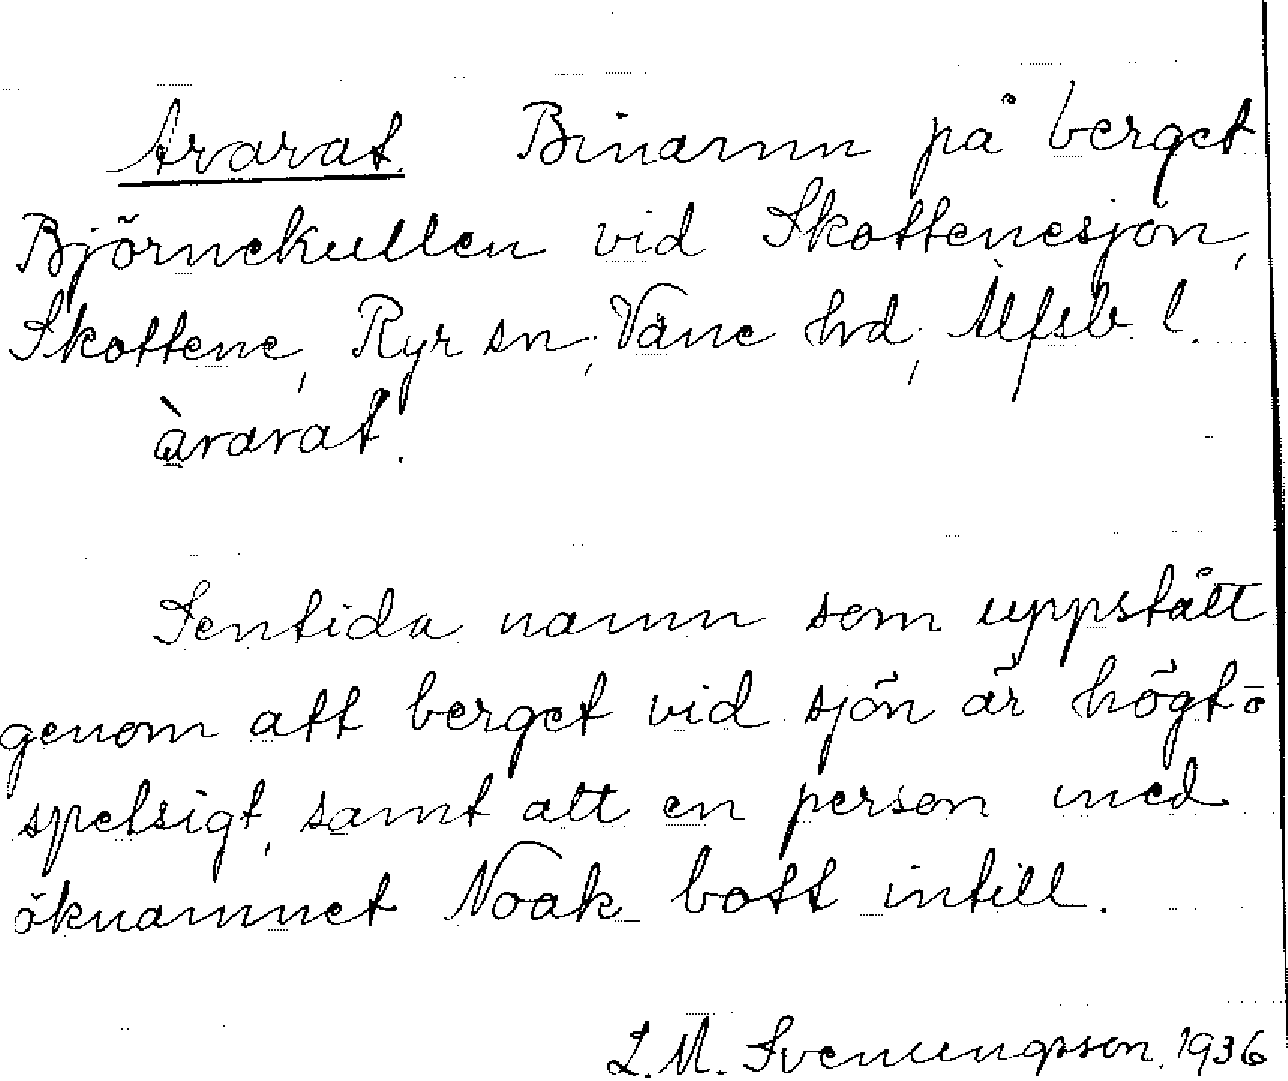 Ararat. Binamn på berget
Björnekullen vid Skottenesjön,
Skottene, Ryr sn, Väne hd, Älfsb. l.
àrarat.
Sentida namn som uppstått
genom att berget vid sjön är högt o
spetsigt, samt att en person med
öknamnet Noak bott intill.
L. M. Svenungsson. 1936